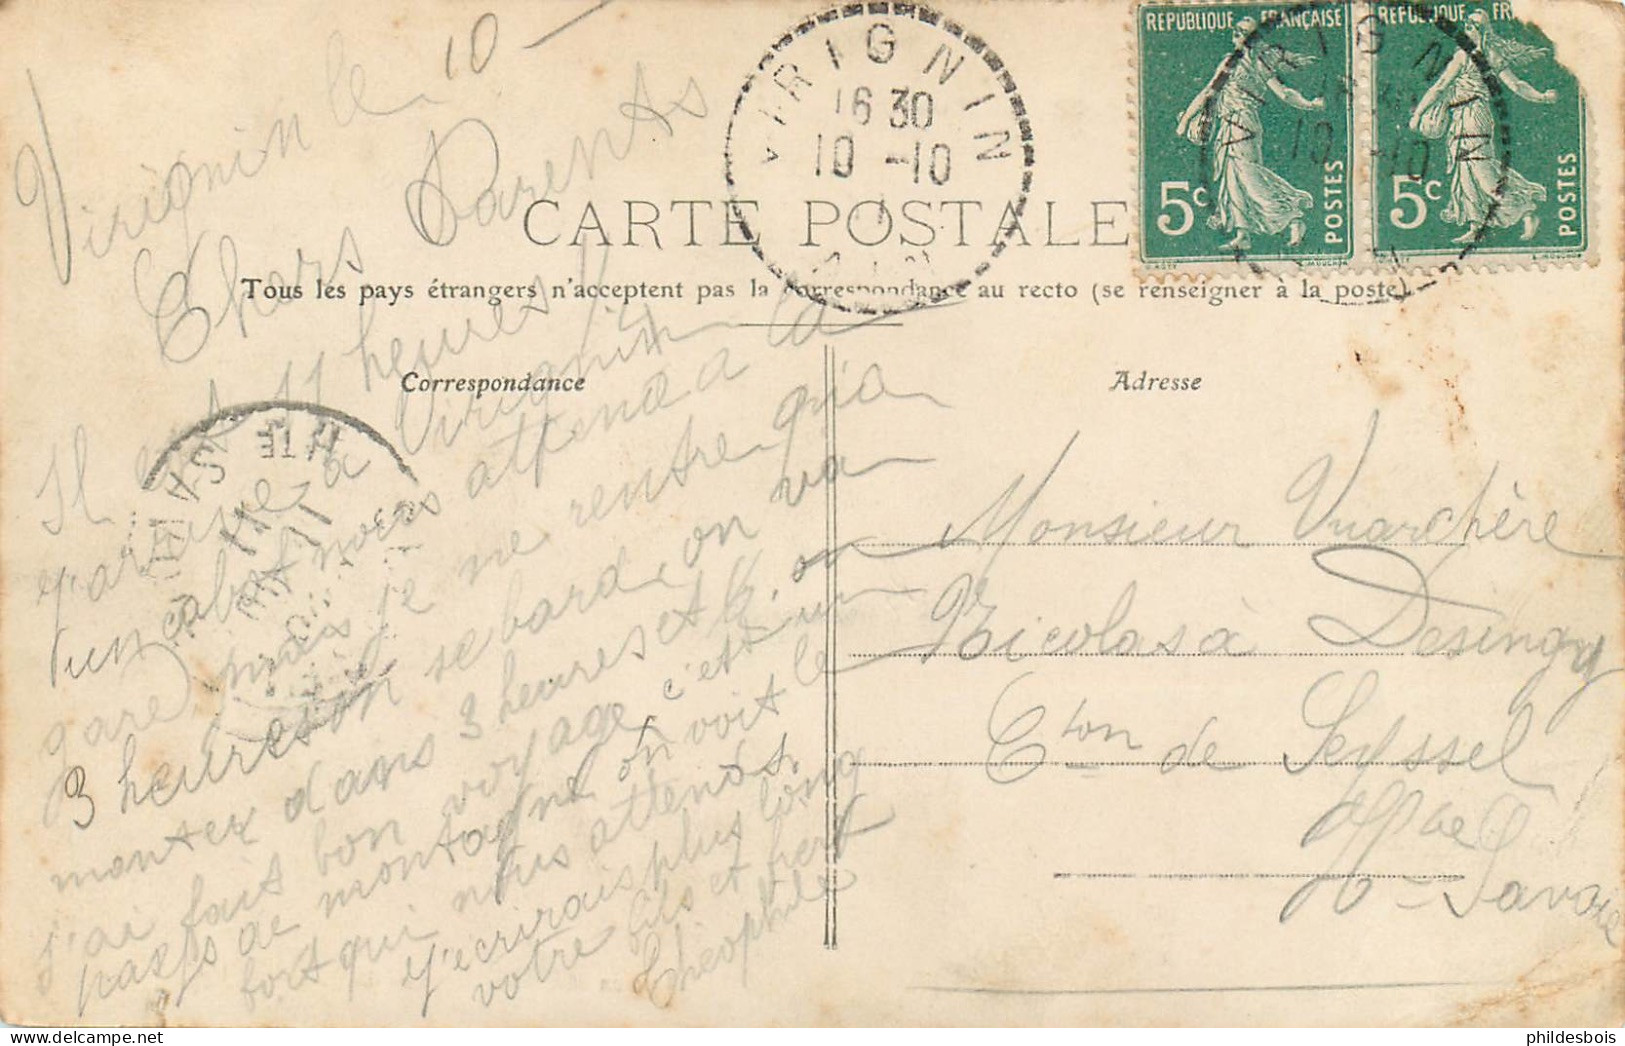 RÉPUBLIQUE FRANÇAISE
5c
POSTES
RÉPUBLIQUE FR
5c
POSTES
VIRIGNIN
16 30
10 -10
11
VIRIGNIN
10 -10
CARTE POSTALE
Tous les pays étrangers n'acceptent pas la correspondance au recto (se renseigner à la poste)
Correspondance
Adresse
Virignin le 10
Chers Parents
Il est 11 heures
j'arrive à Virignin
un cabot nous attend a la
gare mais je ne rentre qu'a
3 heures on se barde, on va
monter dans 3 heures et ½. on
j'ai fait bon voyage c'est un
pays de montagne on voit le
fort qui nous attends,
j'ecrirais plus long
votre fils et frert
Théophile
HTE SA
Monsieur Vuarchère
Nicolas à Desingy
Cton de Seyssel
Hte Savoie
phildesbois